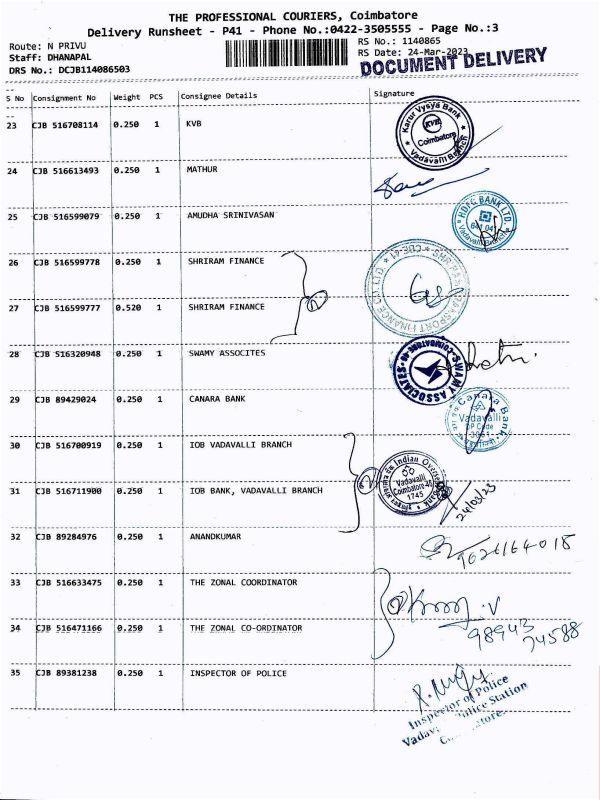 THE PROFESSIONAL COURIERS, Coimbatore
Delivery Runsheet - P41 - Phone No.:0422-3505555 - Page No.:3
Route: N PRIVU
RS No.: 1140865
Staff: DHANAPAL
RS Date: 24-Mar-2023
DRS No.: DCJB114086503
DOCUMENT DELIVERY
S No Consignment No Weight PCS Consignee Details Signature
23 CJB 516708114 0.250 1 KVB
Karur Vysya Bank
KVB
Coimbatore
Vadavalli Branch
24 CJB 516613493 0.250 1 MATHUR
25 CJB 516599079 0.250 1 AMUDHA SRINIVASAN
HDFC BANK LTD.
641 041
Vadavalli Branch
26 CJB 516599778 0.250 1 SHRIRAM FINANCE
27 CJB 516599777 0.520 1 SHRIRAM FINANCE
2
FINANCE CO LTD. CBE-41
28 CJB 516320948 0.250 1 SWAMY ASSOCITES
SWAMY ASSOCIATES
29 CJB 89429024 0.250 1 CANARA BANK
Canara Bank
Vadavalli
DP Code
30 CJB 516700919 0.250 1 IOB VADAVALLI BRANCH
31 CJB 516711900 0.250 1 IOB BANK, VADAVALLI BRANCH
2
Indian Overseas Bank
Vadavalli
Coimbatore-41
1745
24/03/23
32 CJB 89284976 0.250 1 ANANDKUMAR
33 CJB 516633475 0.250 1 THE ZONAL COORDINATOR
34 CJB 516471166 0.250 1 THE ZONAL CO-ORDINATOR
2
98943
74588
35 CJB 89381238 0.250 1 INSPECTOR OF POLICE
Inspector of Police
Police Station